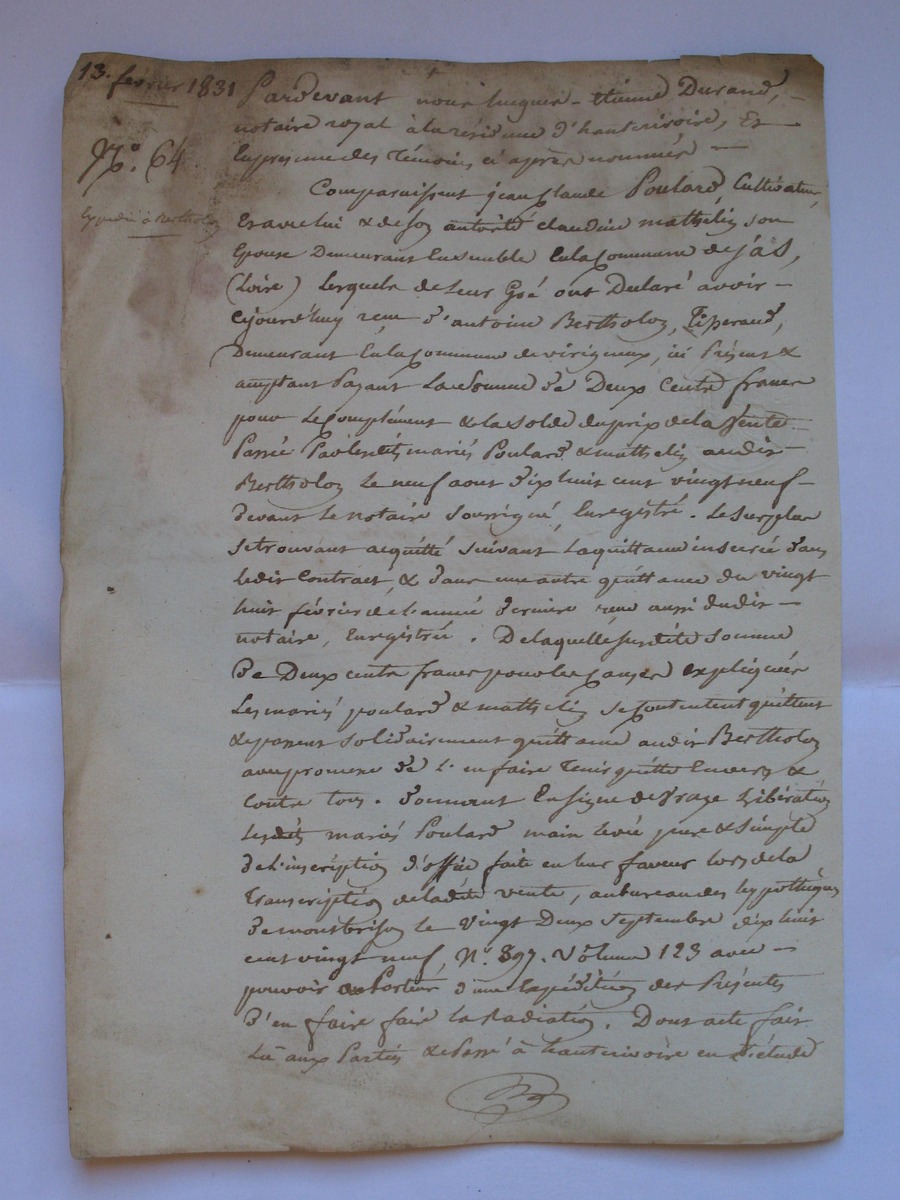 13. fevrier 1831
N.º 64
Expédié à Bertholon
Pardevant nous hugues-étienne Durand,
notaire royal à la résidence d'hauterivoire, Et
En presence des Témoins ci après nommés
Comparaissent jean Claude Poulard, Cultivateur,
Et avec lui & de son autorité claudine mathelin son
Epouse Demeurant Ensemble En la Commune de jas,
(Loire) Lesquels de leur Gré ont Déclaré avoir
cejourd'huy reçu d'antoine Bertholon, Tisserand,
Demeurant En la Commune de virigneux, ici Présent &
acceptant Payant La Somme de Deux Cents francs
pour Le Complément & la Solde du prix de la Vente
Passée Par lesdits mariés Poulard & mathelin audit
Bertholon Le neuf aout dix huit cent vingt neuf
devant Le notaire Soussigné, Enregistré. Le Surplus
se trouvant acquitté suivant La quittance inserée dans
ledit Contract, & dans une autre quittance du vingt
huit février de l'année derniere reçue aussi dudit
notaire, Enregistrée. De laquelle susdite somme
de Deux cents francs pour les causes expliquées
Les mariés poulard & mathelin se contentent quittent
& passent solidairement quittance audit Bertholon
avec promesse de l'en faire Tenir quitte Envers &
Contre tous. donnant En signe de Vraye Libération
lesdits mariés Poulard main levée pure & simple
de l'inscription d'office faite en leur faveur lors de la
Transcription de ladite vente, au bureau des hypothèques
de montbrison le Vingt Deux Septembre dix huit
cent vingt neuf, N.º 897. Volume 123 avec
pouvoir au Porteur d'une Expédition des Présentes
d'en faire faire la Radiation. Dont acte fait
Lu aux Parties & Passé à hauterivoire en l'étude